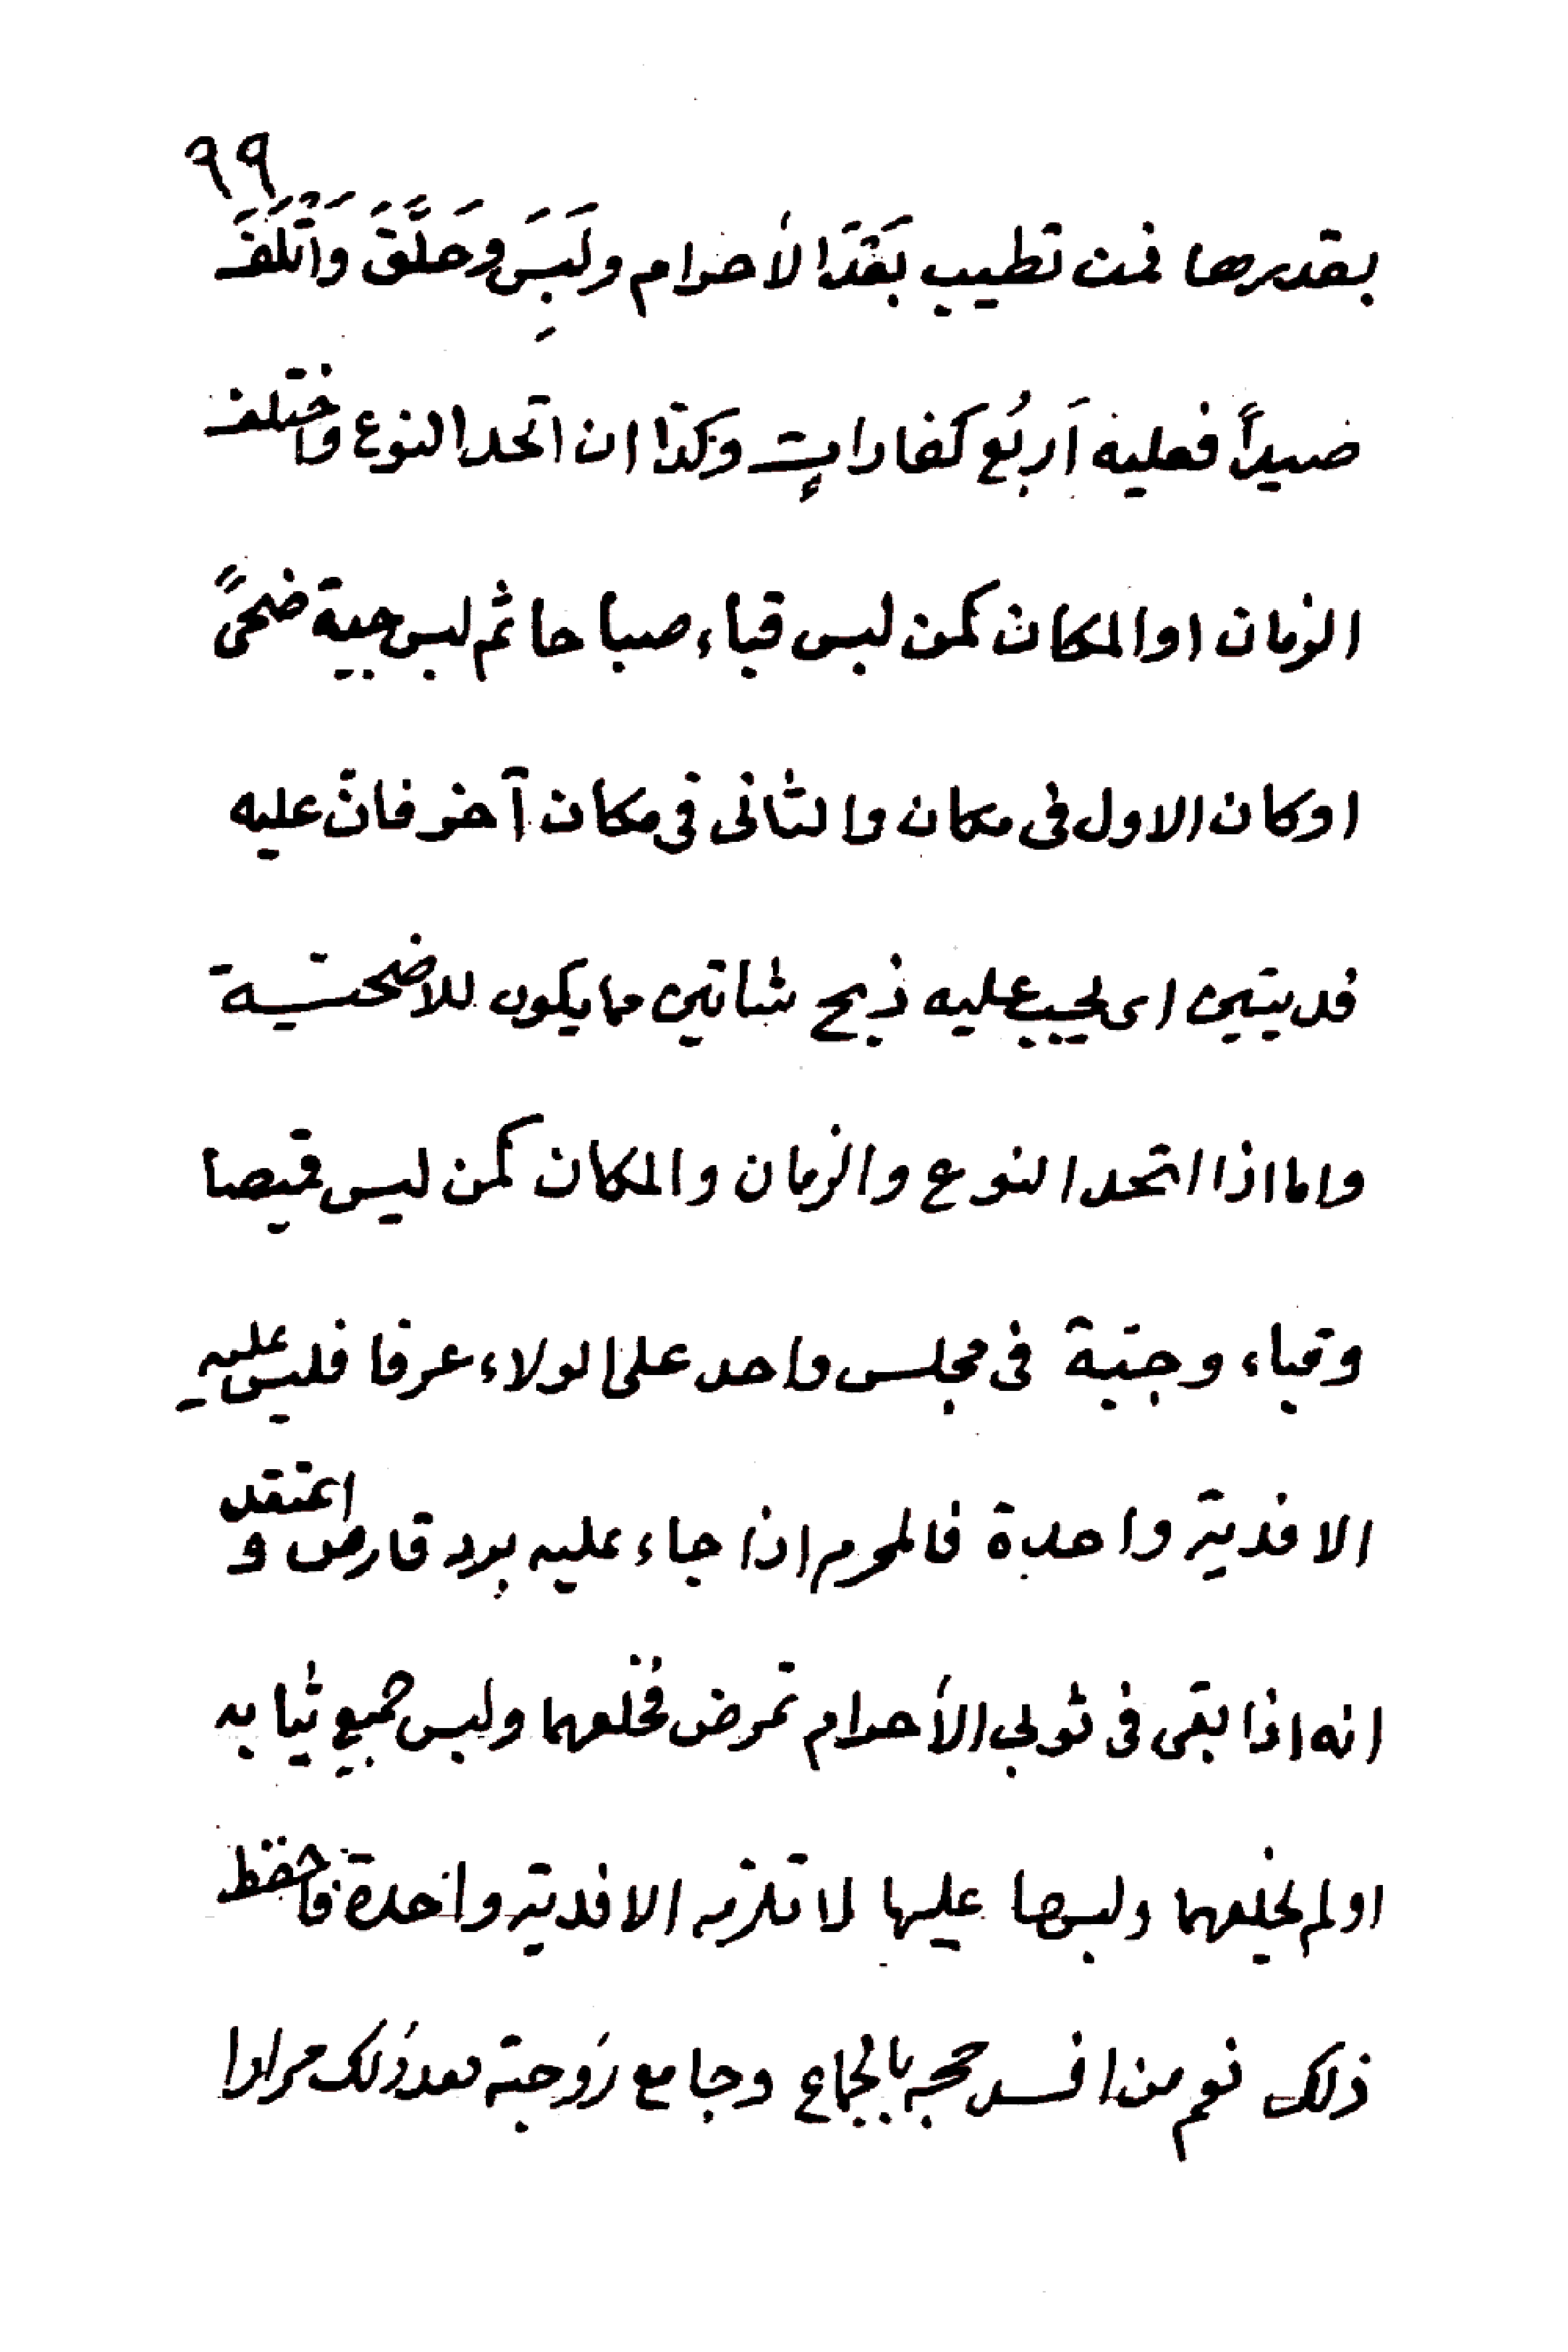 ٩٩
بقدرها فمن تطيب بَعْدَ الأحرام ولَبِسَ وحَلَّقَ وَاَتْلَفَ
صيداً فعليه اَربُع كفاراتٍ وكذا ان اتحد النوع واختلف
الزمان او المكان كمن لبس قباء صباحا ثم لبس جبة ضحىً
او كان الاول فى مكان والثانى فى مكان آخر فان عليه
فديتين اى يجب عليه ذبح شاتين مما يكون للاضحية
واما اذا اتحد النوع والزمان والمكان كمن لبس قميصا
وقباء وجبّة فى مجلس واحد على الولاء عرفا فليس عليهِ
الا فدية واحدة فالمحرم اذا جاء عليه برد قارص و اعتقد
انه اذا بقى فى ثوبي الأحرام تمرض فخلعهما ولبس جميع ثيابه
او لم يخلعهما ولبسها عليها لا تلزمه الا فدية واحدة فاحفظ
ذلك نعم من افسد حجه بالجماع وجامع زوجته بعد ذلك مرارا